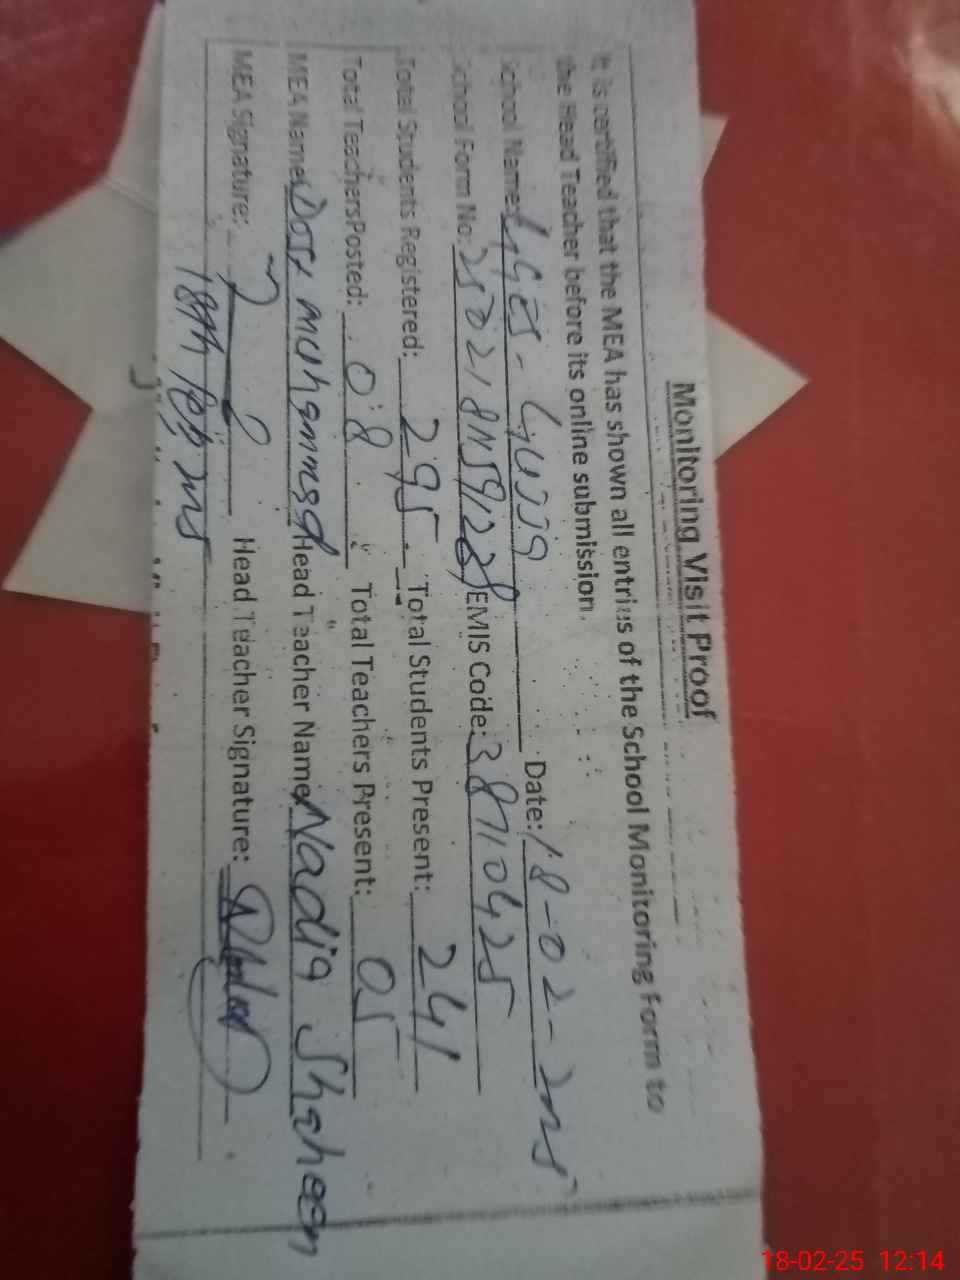 Monitoring Visit Proof
It is certified that the MEA has shown all entries of the School Monitoring Form to
the Head Teacher before its online submission.
School Name: GGES- Date: 18-02-2025
School Form No: EMIS Code: 38710425
Total Students Registered: 295 Total Students Present: 241
Total Teachers Posted: 08 Total Teachers Present: 05
MEA Name: Dost muhammad Head Teacher Name: Nadia Shaheen
MEA Signature: Head Teacher Signature:
18th feb
18-02-25 12:14